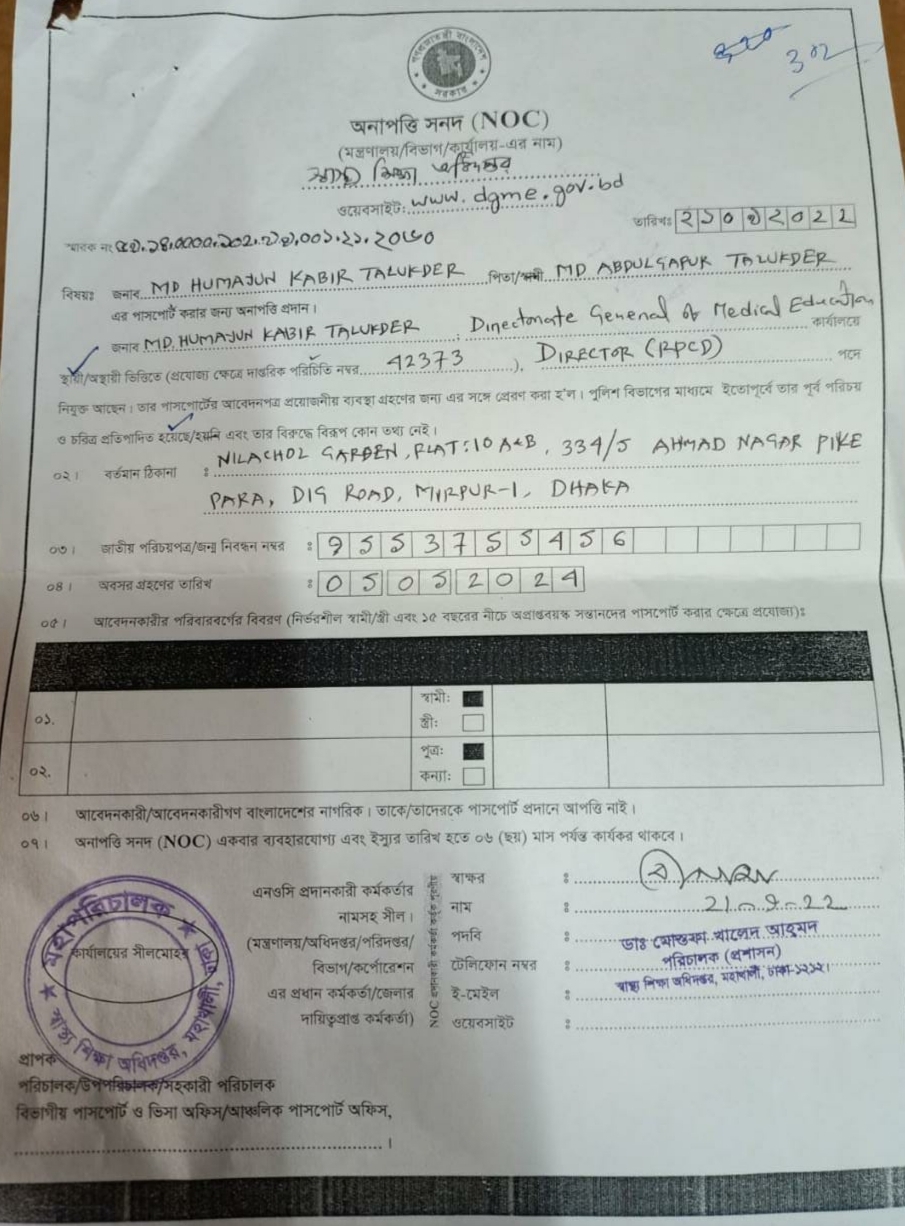 গণপ্রজাতন্ত্রী বাংলাদেশ
সরকার
302
অনাপত্তি সনদ (NOC)
(মন্ত্রণালয়/বিভাগ/কার্যালয়-এর নাম)
স্বাস্থ্য শিক্ষা অধিদপ্তর
ওয়েবসাইট: www.dgme.gov.bd
তারিখঃ ২১০৯২০২২
স্মারক নং
বিষয়ঃ জনাব MD HUMAJUN KABIR TALUKDER পিতা/স্বামী MD ABDULGAPUR TALUKDER
এর পাসপোর্ট করার জন্য অনাপত্তি প্রদান।
জনাব MD. HUMAJUN KABIR TALUKDER ; Directorate General of Medical Education কার্যালয়ে
স্থায়ী/অস্থায়ী ভিত্তিতে (প্রযোজ্য ক্ষেত্রে দাপ্তরিক পরিচিতি নম্বর 42373 ), DIRECTOR (RPCD) পদে
নিযুক্ত আছেন। তার পাসপোর্টের আবেদনপত্র প্রয়োজনীয় ব্যবস্থা গ্রহণের জন্য এর সঙ্গে প্রেরণ করা হ'ল। পুলিশ বিভাগের মাধ্যমে ইতোপূর্বে তার পূর্ব পরিচয়
ও চরিত্র প্রতিপাদিত হয়েছে/হয়নি এবং তার বিরুদ্ধে বিরূপ কোন তথ্য নেই।
০২। বর্তমান ঠিকানা : NILACHOL GARDEN, FLAT: 10 A&B, 334/5 AHMAD NAGAR PIKE
PARA, DIG ROAD, MIRPUR-1, DHAKA
০৩। জাতীয় পরিচয়পত্র/জন্ম নিবন্ধন নম্বর ঃ 9553755456
০৪। অবসর গ্রহণের তারিখ ঃ 05052024
০৫। আবেদনকারীর পরিবারবর্গের বিবরণ (নির্ভরশীল স্বামী/স্ত্রী এবং ১৫ বছরের নীচে অপ্রাপ্তবয়স্ক সন্তানদের পাসপোর্ট করার ক্ষেত্রে প্রযোজ্য)ঃ
০১. স্বামী:
স্ত্রী:
০২. পুত্র:
কন্যা:
০৬। আবেদনকারী/আবেদনকারীগণ বাংলাদেশের নাগরিক। তাকে/তাদেরকে পাসপোর্ট প্রদানে আপত্তি নাই।
০৭। অনাপত্তি সনদ (NOC) একবার ব্যবহারযোগ্য এবং ইস্যুর তারিখ হতে ০৬ (ছয়) মাস পর্যন্ত কার্যকর থাকবে।
মহাপরিচালক
কার্যালয়ের সীলমোহর
স্বাস্থ্য শিক্ষা অধিদপ্তর, মহাখালী,
এনওসি প্রদানকারী কর্মকর্তার
নামসহ সীল।
(মন্ত্রণালয়/অধিদপ্তর/পরিদপ্তর/
বিভাগ/কর্পোরেশন
এর প্রধান কর্মকর্তা/জেলার
দায়িত্বপ্রাপ্ত কর্মকর্তা)
NOC প্রদানকারী কর্মকর্তা কর্তৃক পূরণীয়
স্বাক্ষর ঃ
নাম ঃ 21-9-22
পদবি ঃ ডাঃ মোস্তফা খালেদ আহমদ
টেলিফোন নম্বর ঃ পরিচালক (প্রশাসন)
ই-মেইল ঃ স্বাস্থ্য শিক্ষা অধিদপ্তর, মহাখালী, ঢাকা-১২১২।
ওয়েবসাইট ঃ
প্রাপক
পরিচালক/উপপরিচালক/সহকারী পরিচালক
বিভাগীয় পাসপোর্ট ও ভিসা অফিস/আঞ্চলিক পাসপোর্ট অফিস,